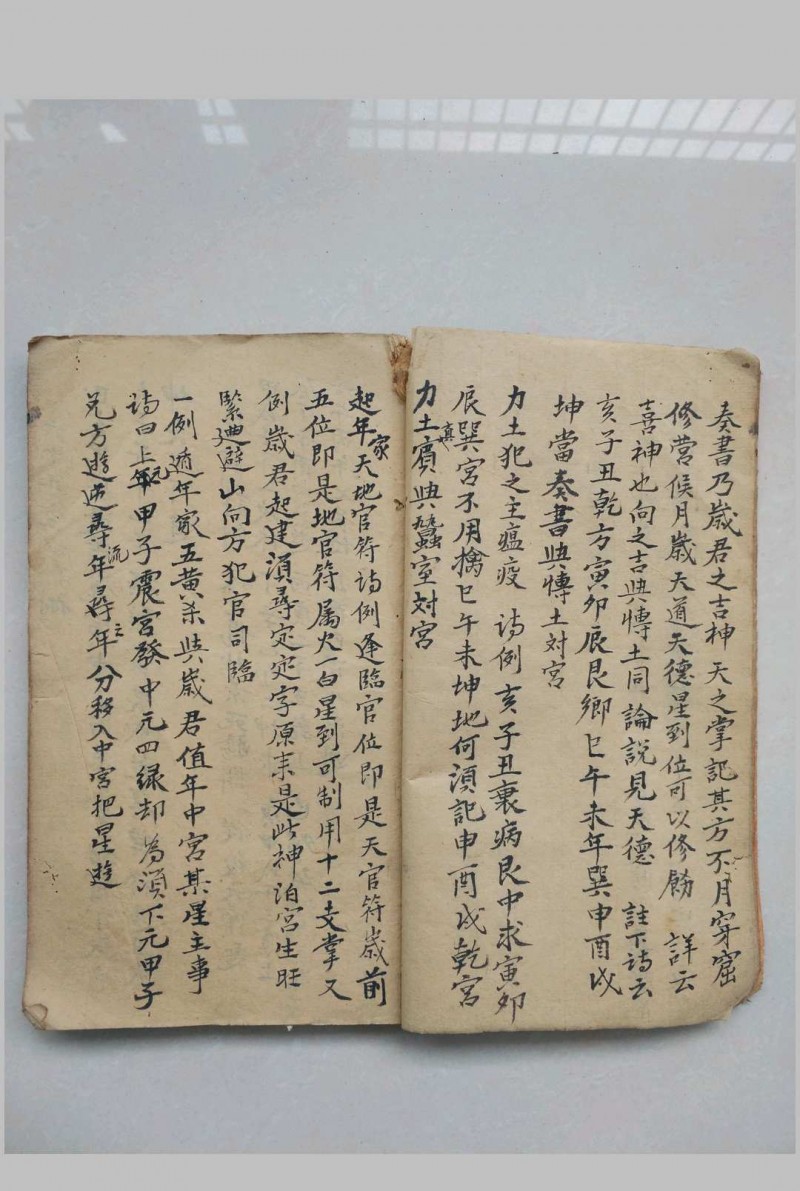 奏書乃歲君之吉神天之掌記其方不月穿窟
修营候月歲天道天德星到位可以修餙 詳云
喜神也向之吉與愽士同論說見天德 註下詩云
亥子丑乾方寅卯辰艮鄉巳午未年巽申酉戌
坤當奏書與愽士対宮
力士犯之主瘟疫 詩例亥子丑裏病艮中求寅卯
辰巽宮不用擒巳午未坤地何湏記申酉戌乾宮
力士賔真與蠶室対宮
起年家天地官符詩例逢臨官位即是天官符歲前
五位即是地官符属火一白星到可制用十二支掌又
例歲君起建湏尋定定字原来是此神泊宮生旺
緊廻避山向方犯官司臨
一例遁年家五黄杀與歲君值年中宮某星主事
詩曰上元年甲子震宮發中元四緑却為湏下元甲子
兑方遊逆尋流年尋年之分移入中宮把星遊